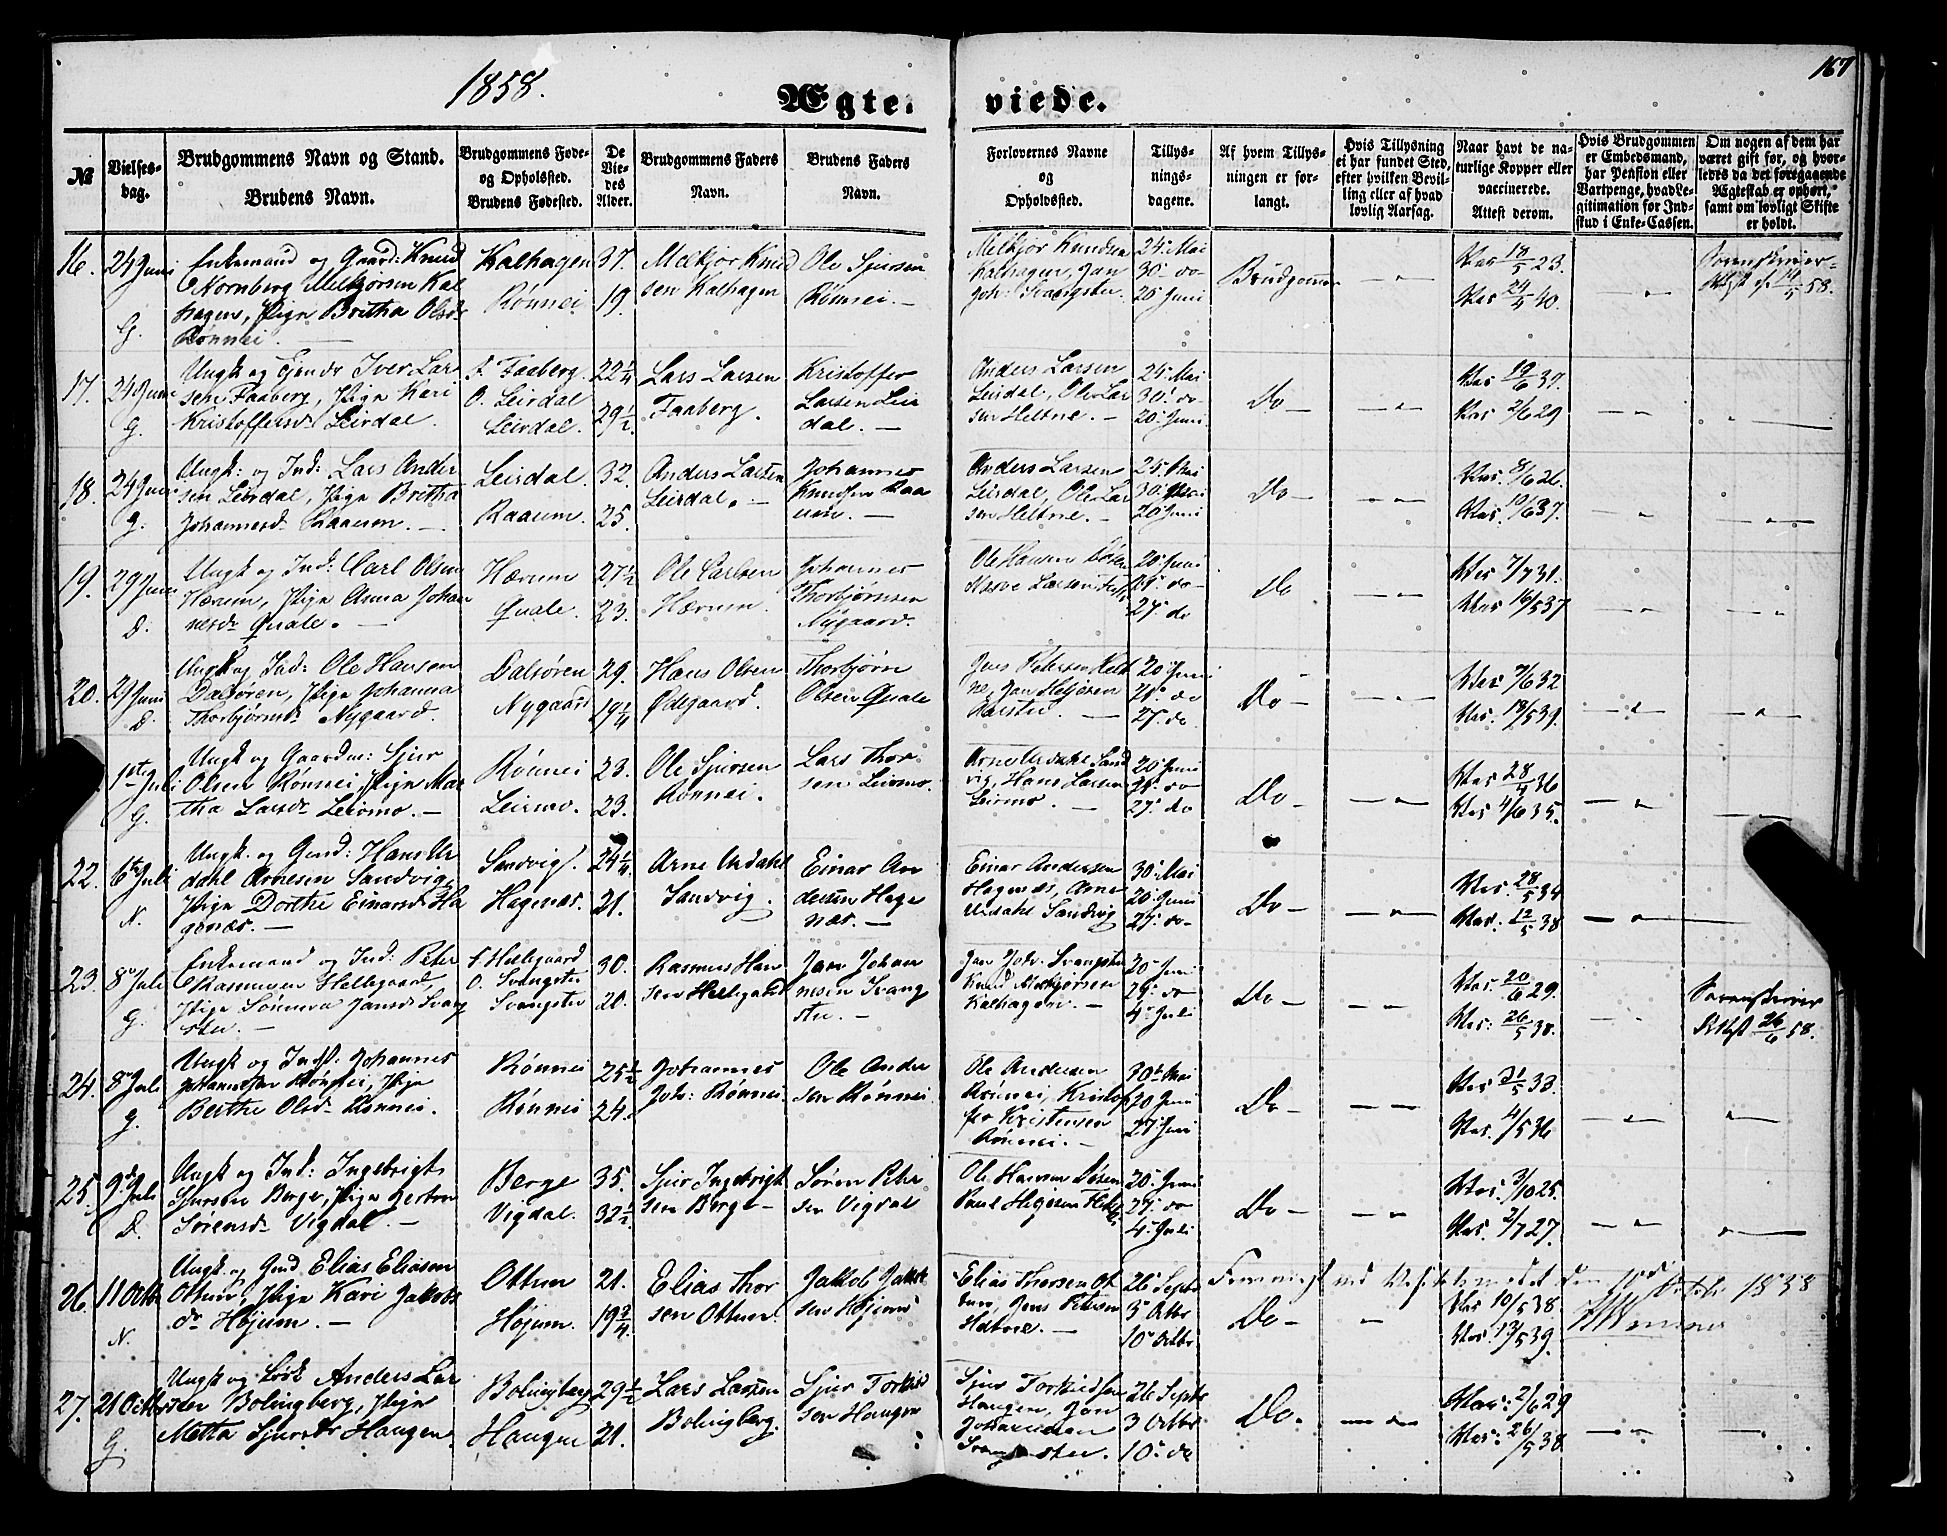 1858.
167
Ægteviede.
№
Vielses-
dag.
Brudgommens Navn og Stand.
Brudens Navn.
Brudgommens Føde-
og Opholdssted.
Brudens Fødested.
De
Vie-
des
Alder.
Brudgommens Faders
Navn.
Brudens Faders
Navn.
Forlovernes Navne
og
Opholdssted.
Tillys-
nings-
dagene.
Af hvem Tillys-
ningen er for-
langt.
Hvis Tillysning
ei har fundet Sted,
efter hvilken Bevil-
ling eller af hvad
lovlig Aarsag.
Naar havt de na-
turlige Kopper eller
vaccinerede.
Attest derom.
Hvis Brudgommen
er Embedsmand,
har Pension eller
Vartpenge, hvad Le-
gitimation for Ind-
skud i Enke-Cassen.
Om nogen af dem har
været gift før, og hvor-
ledes da det foregaaende
Ægteskab er ophørt,
samt om lovligt Skifte
er holdt.
16.
24 Juni
G.
Enkemand og Gaard: Knud
Nornberg Melkjorsen Kal
hagen, Pige Britha Olsdr
Rønnei
Kalhagen
Rønnei
37.
19.
Melkjor Knud
sen Kalhagen
Ole Sjursen
Rønnei.
Melkjor Knudsen
Kalhagen, Jan
Joh: Svangstu.
24. Mai
30. do
20 Juni
Brudgommen
Vac 18/5 23.
Vac 24/4 40.
Sorenskriver-
Attst af 14/5 58.
17.
24 Juni
G.
Ungk og Ejendr Iver Lar
sen Faaberg, Pige Kari
Kristoffersdr Leirdal.
F. Faaberg.
O. Leirdal
Leirdal.
22 1/4
29 1/2.
Lars Larsen
Faaberg.
Kristoffer
Larsen Leir
dal.
Anders Larsen
Leirdal, Ole Lar
sen Heltne.
24. Mai
30. do
20. Juni
Do
Vac 19/6 37.
Vac 2/6 29
18.
24 Juni
G.
Ungk: og Ind: Lars Ander
sen Leirdal, Pige Britha
Johannesdr Raaum.
Leirdal.
Raaum.
32.
25.
Anders Larsen
Leirdal.
Johannes
Knudsen Raa
um.
Anders Larsen
Leirdal, Ole Lar
sen Heltne.
25. Mai
30. Mai
20 Juni
Do
Vac. 8/6 26.
Vac. 10/6 37.
19.
29 Juni
D.
Ungk og Ind: Carl Olsen
Hærum, Pige Anna Johan
nesdr Quale.
Hærum
Quale.
27 1/2
23.
Ole Carlsen
Hærum.
Johannes
Thorbjørnsen
Nygaard.
Ole Hansen
Larsen
20. Juni
do
27. do
Do
Vac 7/7 31.
Vac 16/5 37
20.
29 Juni
D.
Ungk og Ind: Ole Hansen
Dalsøren, Pige Johanna
Thorbjørnsdr Nygaard.
Dalsøren
Nygaard
29.
19 1/4
Hans Olsen
Ødegaard.
Thorbjørn
Olsen Quale
Jens Petersen Helt
ne, Jan
20. Juni
do
27. do
Do
Vac 7/6 32
Vac. 18/5 39.
1ste Juli
G.
Ungk og Gaardm: Sjur
Olsen Rønnei, Pige Mar
tha Larsdr Leirmo.
Rønnei
Leirmo.
23.
23.
Ole Sjursen
Rønnei.
Lars Thor
sen Leirmo.
Arne Urdahl Sand
vig, Hans Larsen
Leirmo.
20 Juni
do
27. do
Do
Vac 28/4 36
Vac 4/6 35.
22.
6te Juli
N.
Ungk. og Gmd: Hans Ur
dahl Arnesen Sandvig,
Pige Dorthe Einarsdr Ha
genæs.
Sandvig.
Hagenæs.
24 1/4
21.
Arne Urdahl
Sandvig.
Einar An
dersen Hage
næs.
Einar Andersen
Hagenæs, Arne
Urdahl Sandvig
30. Mai
20. Juni
27. do
Do
Vac. 28/5 34
Vac. 12/5 38
23.
8de Juli
G.
Enkemand og Ind: Peter
Rasmusen Hellegaard,
Pige Sønneva Jansdr Svang
stu.
F. Hellegaard
O. Svangstu
Svangstu
30.
20.
Rasmus Han
sen Hellegaard
Jan Johan
nesen Svang
stu.
Jan Joh: Svangstu
Knud Melkjorsen
Kalhagen.
20. Juni
do
4. Juli
Do
Vac. 20/6 29.
Vac: 26/5 38.
Sorenskriver
Attst 26/6 58.
24.
8de Juli
G.
Ungk og Indst: Johannes
Johannesen Rønnei, Pige
Berthe Olsdr Rønnei.
Rønnei
Rønnei
25 1/2
24.
Johannes
Joh: Rønnei
Ole Ander
sen Rønnei
Ole Andersen
Rønnei, Kristof
fer Kristensen
Rønnei.
30te Mai
20 Juni
27 Juni
Do
Vac 31/5 33.
Vac. 4/5 36
25.
9de Juli
D.
Ungk og Ind: Ingebrigt
Sjursen Berge, Pige Gertru
Sørensdr Vigdal.
Berge
Vigdal.
35.
32 1/2
Sjur Ingebrigt
sen Berge
Søren Peter
sen Vigdal
Ole Hansen
20. Juni
27. do
4. Juli
Do
Vac. 3/10 25.
Vac. 2/7 27.
26.
11 Octbr
N.
Ungk. og Gmd. Elias Eliasen
Ottum, Pige Kari Jakobs
dr Højum.
Ottum
Højum.
21.
19 3/4
Elias Thor
sen Ottum
Jakob Jakob
sen Højum
Elias Thorsen Ot
tum, Jens Petersen
Heltne.
26 Septbr
3. Octbr
10. Octbr
Fremvist ved Visitatsmødet den Octobr 1858
Do
Vac 10/5 38.
Vac. 13/5 39.
27.
21 Octbr
G.
Ungk og Ander Anders Lar
sen Bolingberg, Pige
Metta Sjursdr Haugen.
Bolingberg
Haugen
29 1/2
21.
Lars Larsen
Bolingberg.
Sjur Torkild
sen Haugen
Sjur Torkildsen
Haugen, Jan
Johannesen
Svangstu.
26 Septbr
3 Octbr
10. do
Do.
Vac: 2/6 29
Vac: 26/5 38.